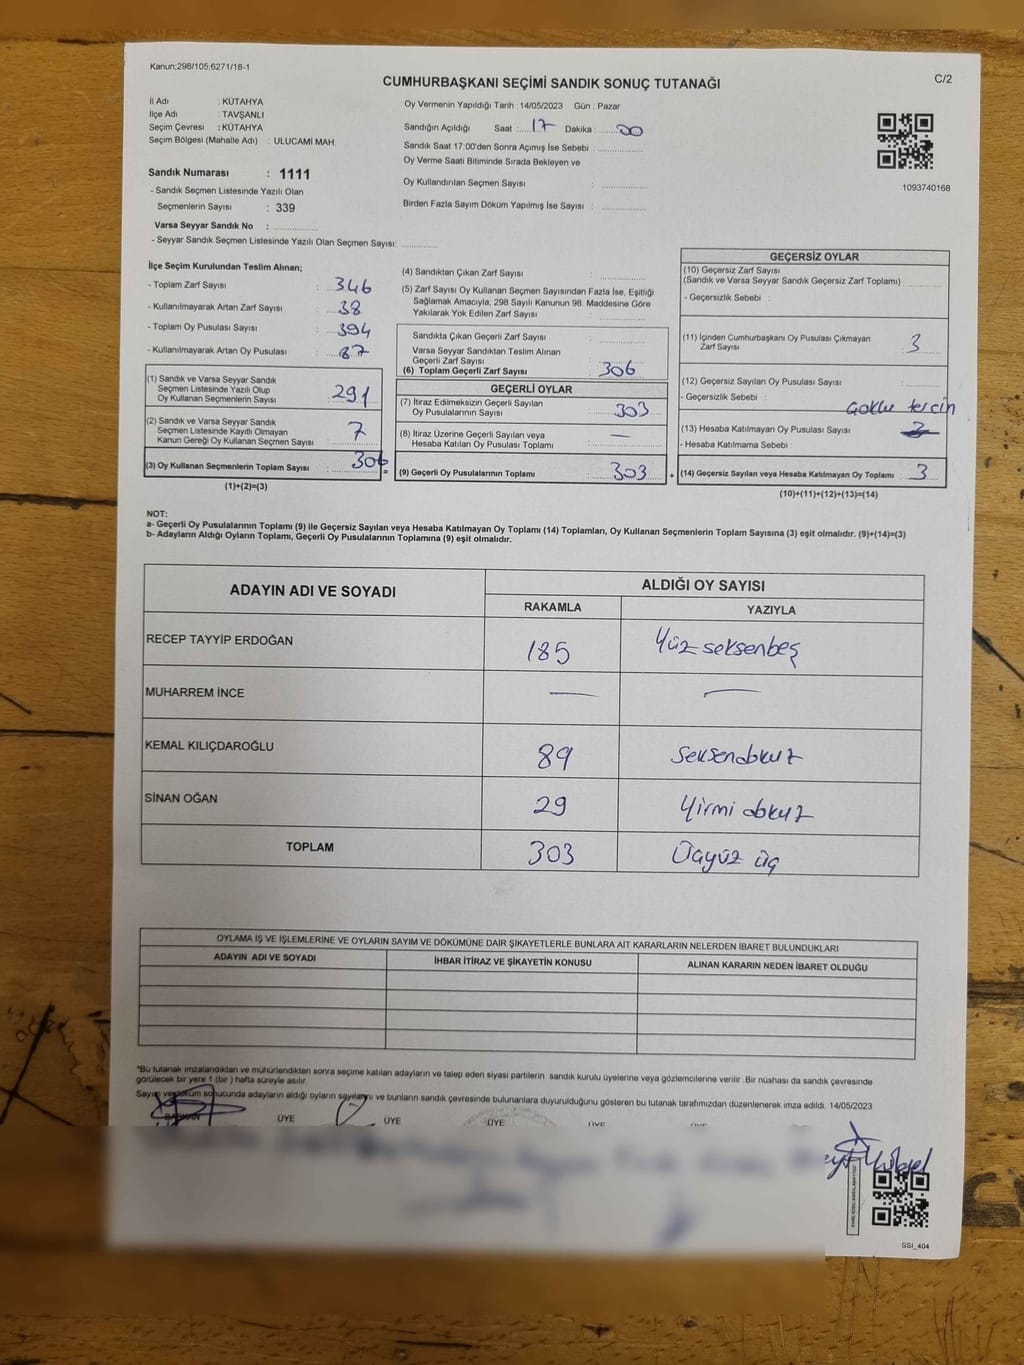 Kanun;298/105;6271/18-1
CUMHURBAŞKANI SEÇİMİ SANDIK SONUÇ TUTANAĞI
C/2
İl Adı : KÜTAHYA
İlçe Adı : TAVŞANLI
Seçim Çevresi : KÜTAHYA
Seçim Bölgesi (Mahalle Adı) : ULUCAMİ MAH.
Sandık Numarası : 1111
- Sandık Seçmen Listesinde Yazılı Olan
Seçmenlerin Sayısı : 339
Varsa Seyyar Sandık No :
- Seyyar Sandık Seçmen Listesinde Yazılı Olan Seçmen Sayısı:
Oy Vermenin Yapıldığı Tarih : 14/05/2023 Gün : Pazar
Sandığın Açıldığı Saat : 17 Dakika : 00
Sandık Saat 17:00'den Sonra Açımış İse Sebebi :
Oy Verme Saati Bitiminde Sırada Bekleyen ve
Oy Kullandırılan Seçmen Sayısı :
Birden Fazla Sayım Döküm Yapılmış İse Sayısı :
1093740168
İlçe Seçim Kurulundan Teslim Alınan;
- Toplam Zarf Sayısı : 346
- Kullanılmayarak Artan Zarf Sayısı : 38
- Toplam Oy Pusulası Sayısı : 394
- Kullanılmayarak Artan Oy Pusulası : 87
(1) Sandık ve Varsa Seyyar Sandık
Seçmen Listesinde Yazılı Olup
Oy Kullanan Seçmenlerin Sayısı : 291
(2) Sandık ve Varsa Seyyar Sandık
Seçmen Listesinde Kayıtlı Olmayan
Kanun Gereği Oy Kullanan Seçmen Sayısı : 7
(3) Oy Kullanan Seçmenlerin Toplam Sayısı : 306
(1)+(2)=(3)
(4) Sandıktan Çıkan Zarf Sayısı :
(5) Zarf Sayısı Oy Kullanan Seçmen Sayısından Fazla İse, Eşitliği
Sağlamak Amacıyla; 298 Sayılı Kanunun 98. Maddesine Göre
Yakılarak Yok Edilen Zarf Sayısı :
Sandıkta Çıkan Geçerli Zarf Sayısı :
Varsa Seyyar Sandıktan Teslim Alınan
Geçerli Zarf Sayısı :
(6) Toplam Geçerli Zarf Sayısı : 306
GEÇERLİ OYLAR
(7) İtiraz Edilmeksizin Geçerli Sayılan
Oy Pusulalarının Sayısı : 303
(8) İtiraz Üzerine Geçerli Sayılan veya
Hesaba Katılan Oy Pusulası Toplamı : —
(9) Geçerli Oy Pusulalarının Toplamı : 303
=
+
GEÇERSİZ OYLAR
(10) Geçersiz Zarf Sayısı
(Sandık ve Varsa Seyyar Sandık Geçersiz Zarf Toplamı) :
- Geçersizlik Sebebi :
(11) İçinden Cumhurbaşkanı Oy Pusulası Çıkmayan
Zarf Sayısı : 3
(12) Geçersiz Sayılan Oy Pusulası Sayısı :
- Geçersizlik Sebebi : Çoklu tercih
(13) Hesaba Katılmayan Oy Pusulası Sayısı :
- Hesaba Katılmama Sebebi :
(14) Geçersiz Sayılan veya Hesaba Katılmayan Oy Toplamı : 3
(10)+(11)+(12)+(13)=(14)
NOT:
a- Geçerli Oy Pusulalarının Toplamı (9) ile Geçersiz Sayılan veya Hesaba Katılmayan Oy Toplamı (14) Toplamları, Oy Kullanan Seçmenlerin Toplam Sayısına (3) eşit olmalıdır. (9)+(14)=(3)
b- Adayların Aldığı Oyların Toplamı, Geçerli Oy Pusulalarının Toplamına (9) eşit olmalıdır.
ADAYIN ADI VE SOYADI ALDIĞI OY SAYISI
RAKAMLA YAZIYLA
RECEP TAYYİP ERDOĞAN 185 Yüz seksenbeş
MUHARREM İNCE — —
KEMAL KILIÇDAROĞLU 89 Seksendokuz
SİNAN OĞAN 29 Yirmi dokuz
TOPLAM 303 Üçyüz üç
OYLAMA İŞ VE İŞLEMLERİNE VE OYLARIN SAYIM VE DÖKÜMÜNE DAİR ŞİKAYETLERLE BUNLARA AİT KARARLARIN NELERDEN İBARET BULUNDUKLARI
ADAYIN ADI VE SOYADI İHBAR İTİRAZ VE ŞİKAYETİN KONUSU ALINAN KARARIN NEDEN İBARET OLDUĞU
*Bu tutanak imzalandıktan ve mühürlendikten sonra seçime katılan adayların ve talep eden siyasi partilerin sandık kurulu üyelerine veya gözlemcilerine verilir .Bir nüshası da sandık çevresinde
görülecek bir yere 1 (bir ) hafta süreyle asılır.
Sayım ve döküm sonucunda adayların aldığı oyların sayılarını ve bunların sandık çevresinde bulunanlara duyurulduğunu gösteren bu tutanak tarafımızdan düzenlenerek imza edildi. 14/05/2023
BAŞKAN ÜYE ÜYE ÜYE ÜYE ÜYE
SSI_404